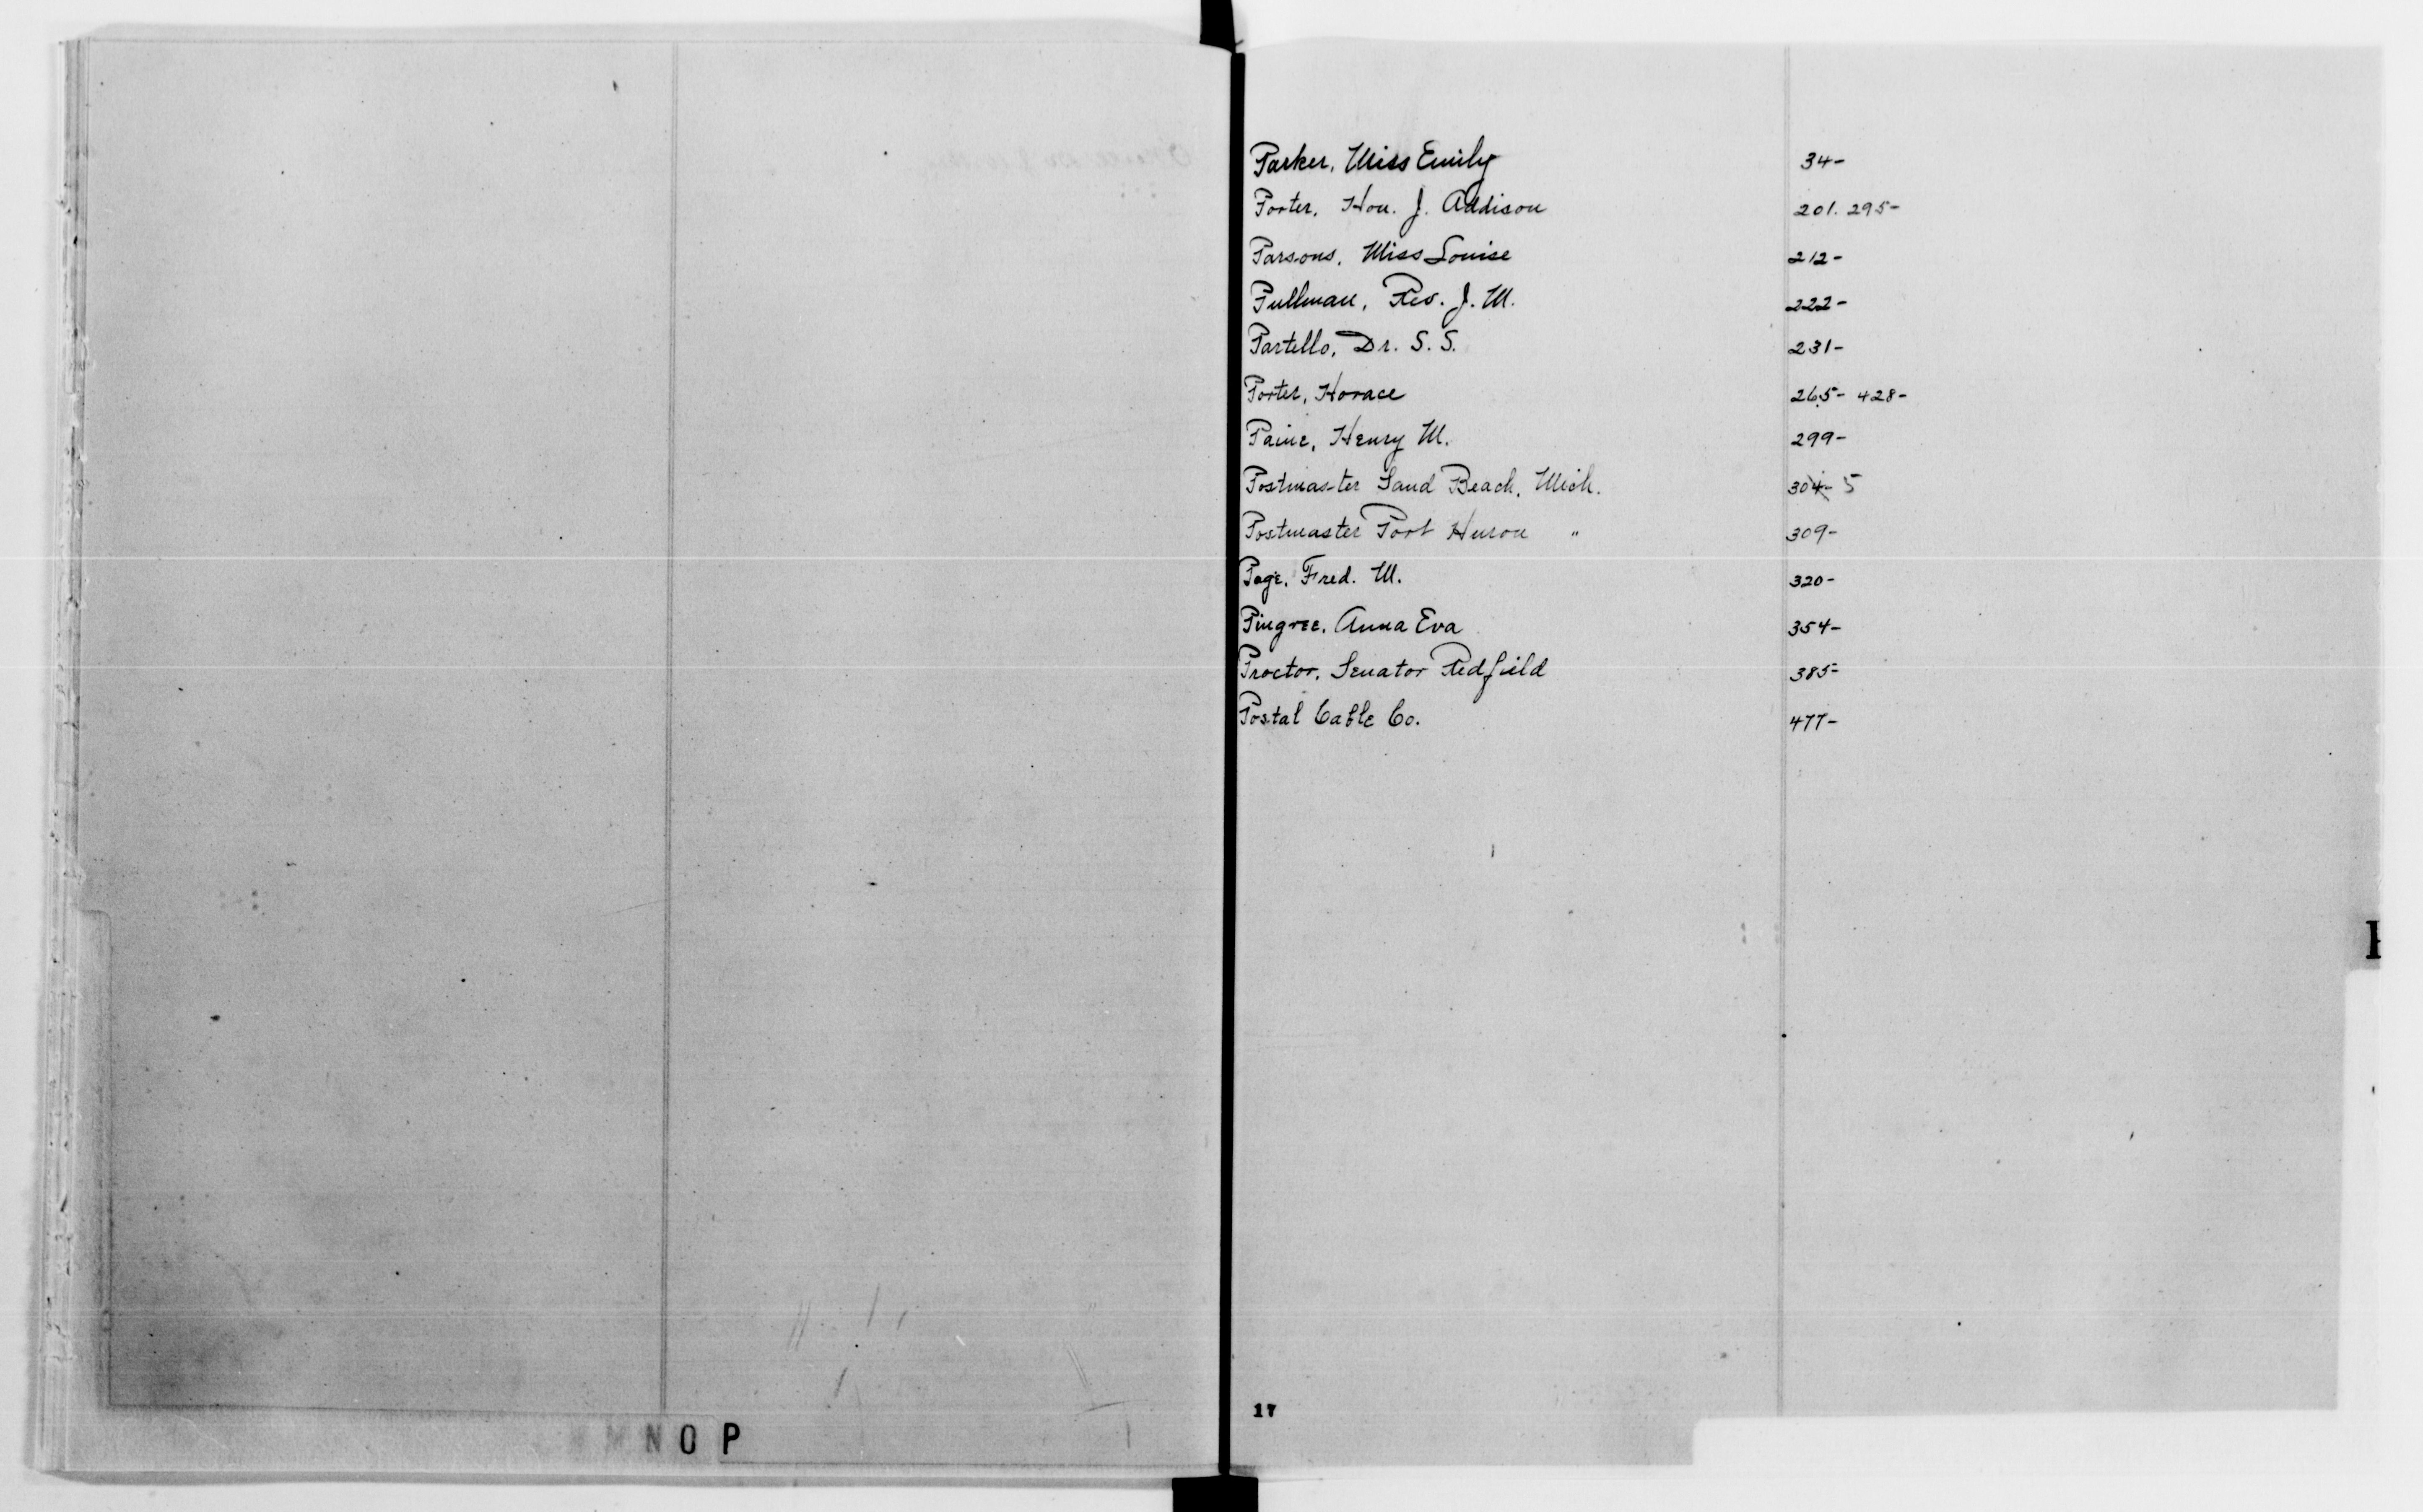 Parker, Miss Emily 34-
Porter, Hon. J. Addison 201. 295-
Parsons, Miss Louise 212-
Pullman, Rev. J. M. 222-
Partello, Dr. S. S. 231-
Porter, Horace 265- 428-
Paine, Henry M. 299-
Postmaster Sand Beach, Mich. 304- 5
Postmaster Port Huron " 309-
Page, Fred. M. 320-
Pingree, Anna Eva 354-
Proctor, Senator Redfield 385-
Postal Cable Co. 477-
17
M N O P